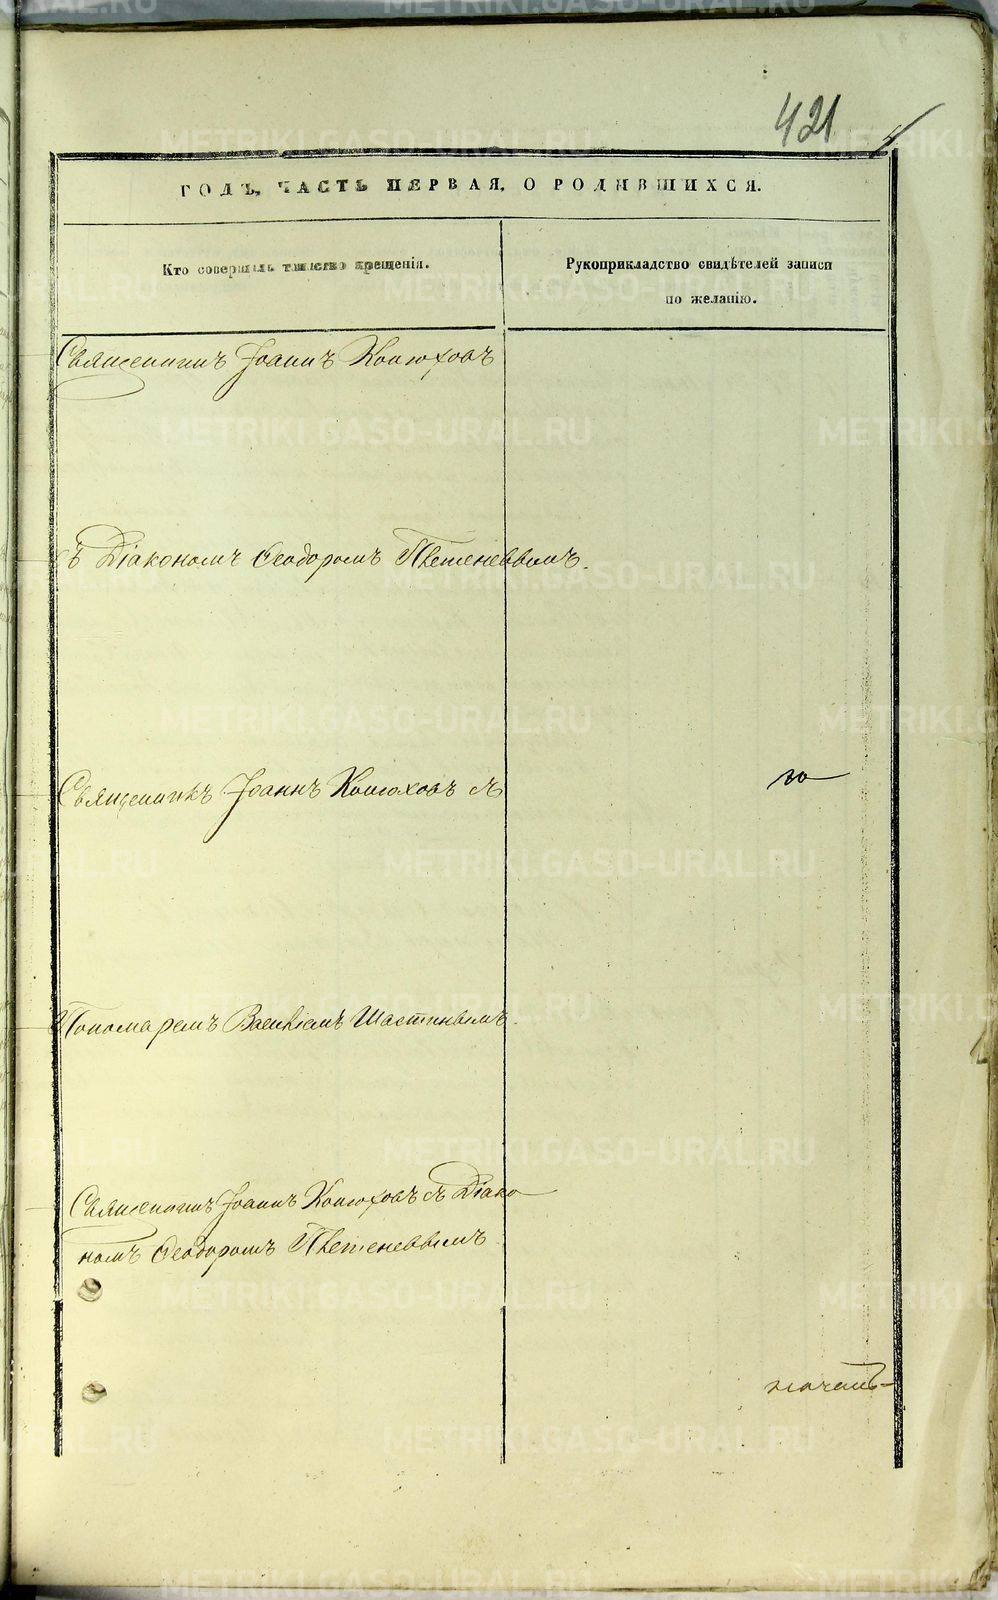 421
ГОДЪ, ЧАСТЬ ПЕРВАЯ, О РОДИВШИХСЯ.
Кто совершалъ таинство крещенія.
Рукоприкладство свидѣтелей записи
по желанію.
Священникъ Іоаннъ Конюховъ
съ Діакономъ Ѳеодоромъ
Священникъ Іоаннъ Конюховъ съ
Пономаремъ Василіемъ Шастинымъ.
Священникъ Іоаннъ Конюховъ съ Діако
номъ Ѳеодоромъ
METRIKI.GASO-URAL.RU